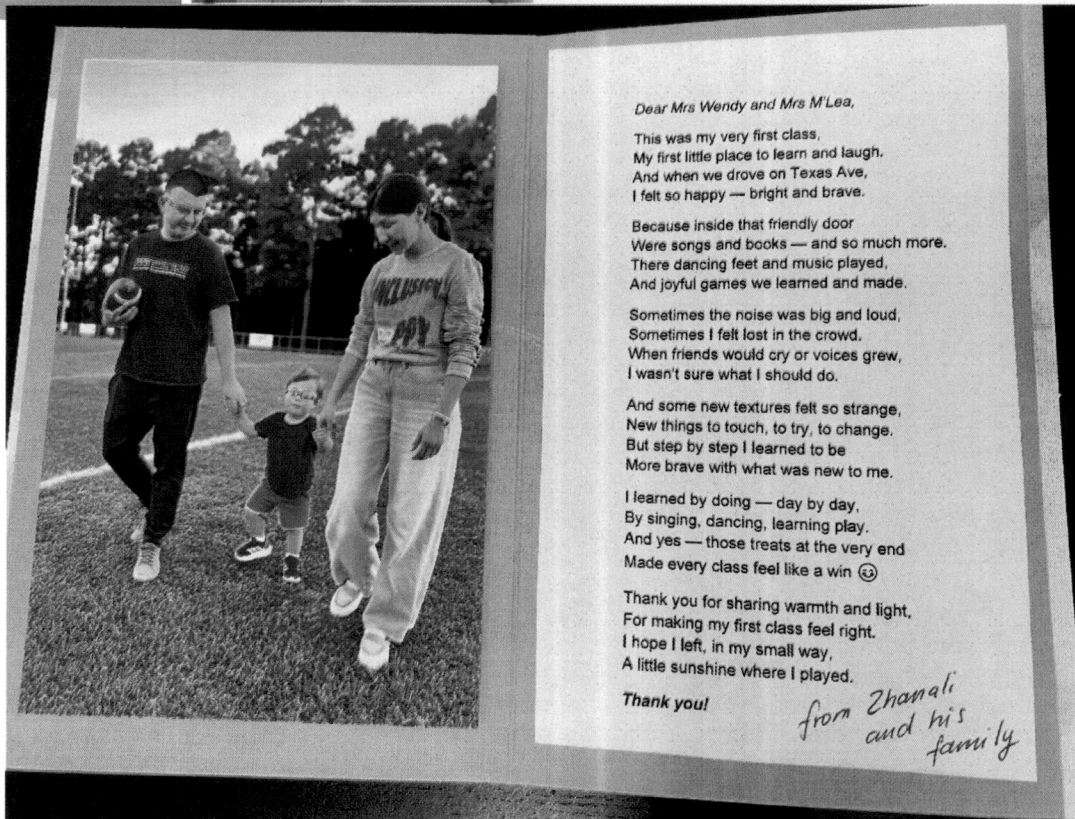 INCLUSION
Dear Mrs Wendy and Mrs M'Lea,
This was my very first class,
My first little place to learn and laugh.
And when we drove on Texas Ave,
I felt so happy — bright and brave.
Because inside that friendly door
Were songs and books — and so much more.
There dancing feet and music played,
And joyful games we learned and made.
Sometimes the noise was big and loud,
Sometimes I felt lost in the crowd.
When friends would cry or voices grew,
I wasn't sure what I should do.
And some new textures felt so strange,
New things to touch, to try, to change.
But step by step I learned to be
More brave with what was new to me.
I learned by doing — day by day,
By singing, dancing, learning play.
And yes — those treats at the very end
Made every class feel like a win ☺
Thank you for sharing warmth and light,
For making my first class feel right.
I hope I left, in my small way,
A little sunshine where I played.
Thank you!
from Zhanali
and his
family